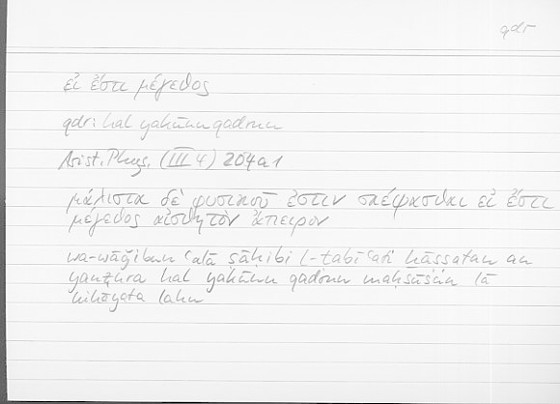 qdr
εἰ ἔστι μέγεθος
qdr: hal yakūnu qadrun
Arist. Phys. (III 4) 204a1
μάλιστα δὲ φυσικοῦ ἐστιν σκέψασθαι εἰ ἔστι
μέγεθος αἰσθητὸν ἄπειρον
wa-wāǧibun ʿalā ṣāḥibi l-ṭabīʿati ḫāṣṣatan an
yanẓura hal yakūnu qadrun maḥsūsun lā
nihāyata lahu